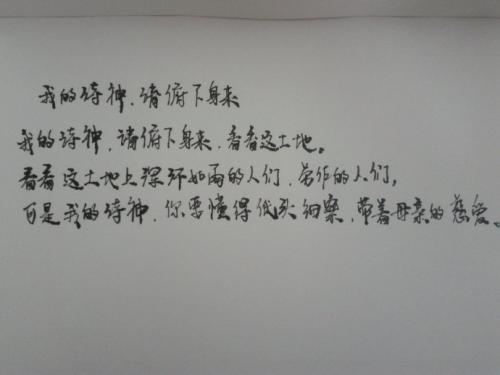 我的诗神，请俯下身来
我的诗神，请俯下身来，看看这土地。
看看这土地上深沉如雨的人们，劳作的人们，
可是我的诗神，你要懂得低头细察，带着母亲的慈爱。